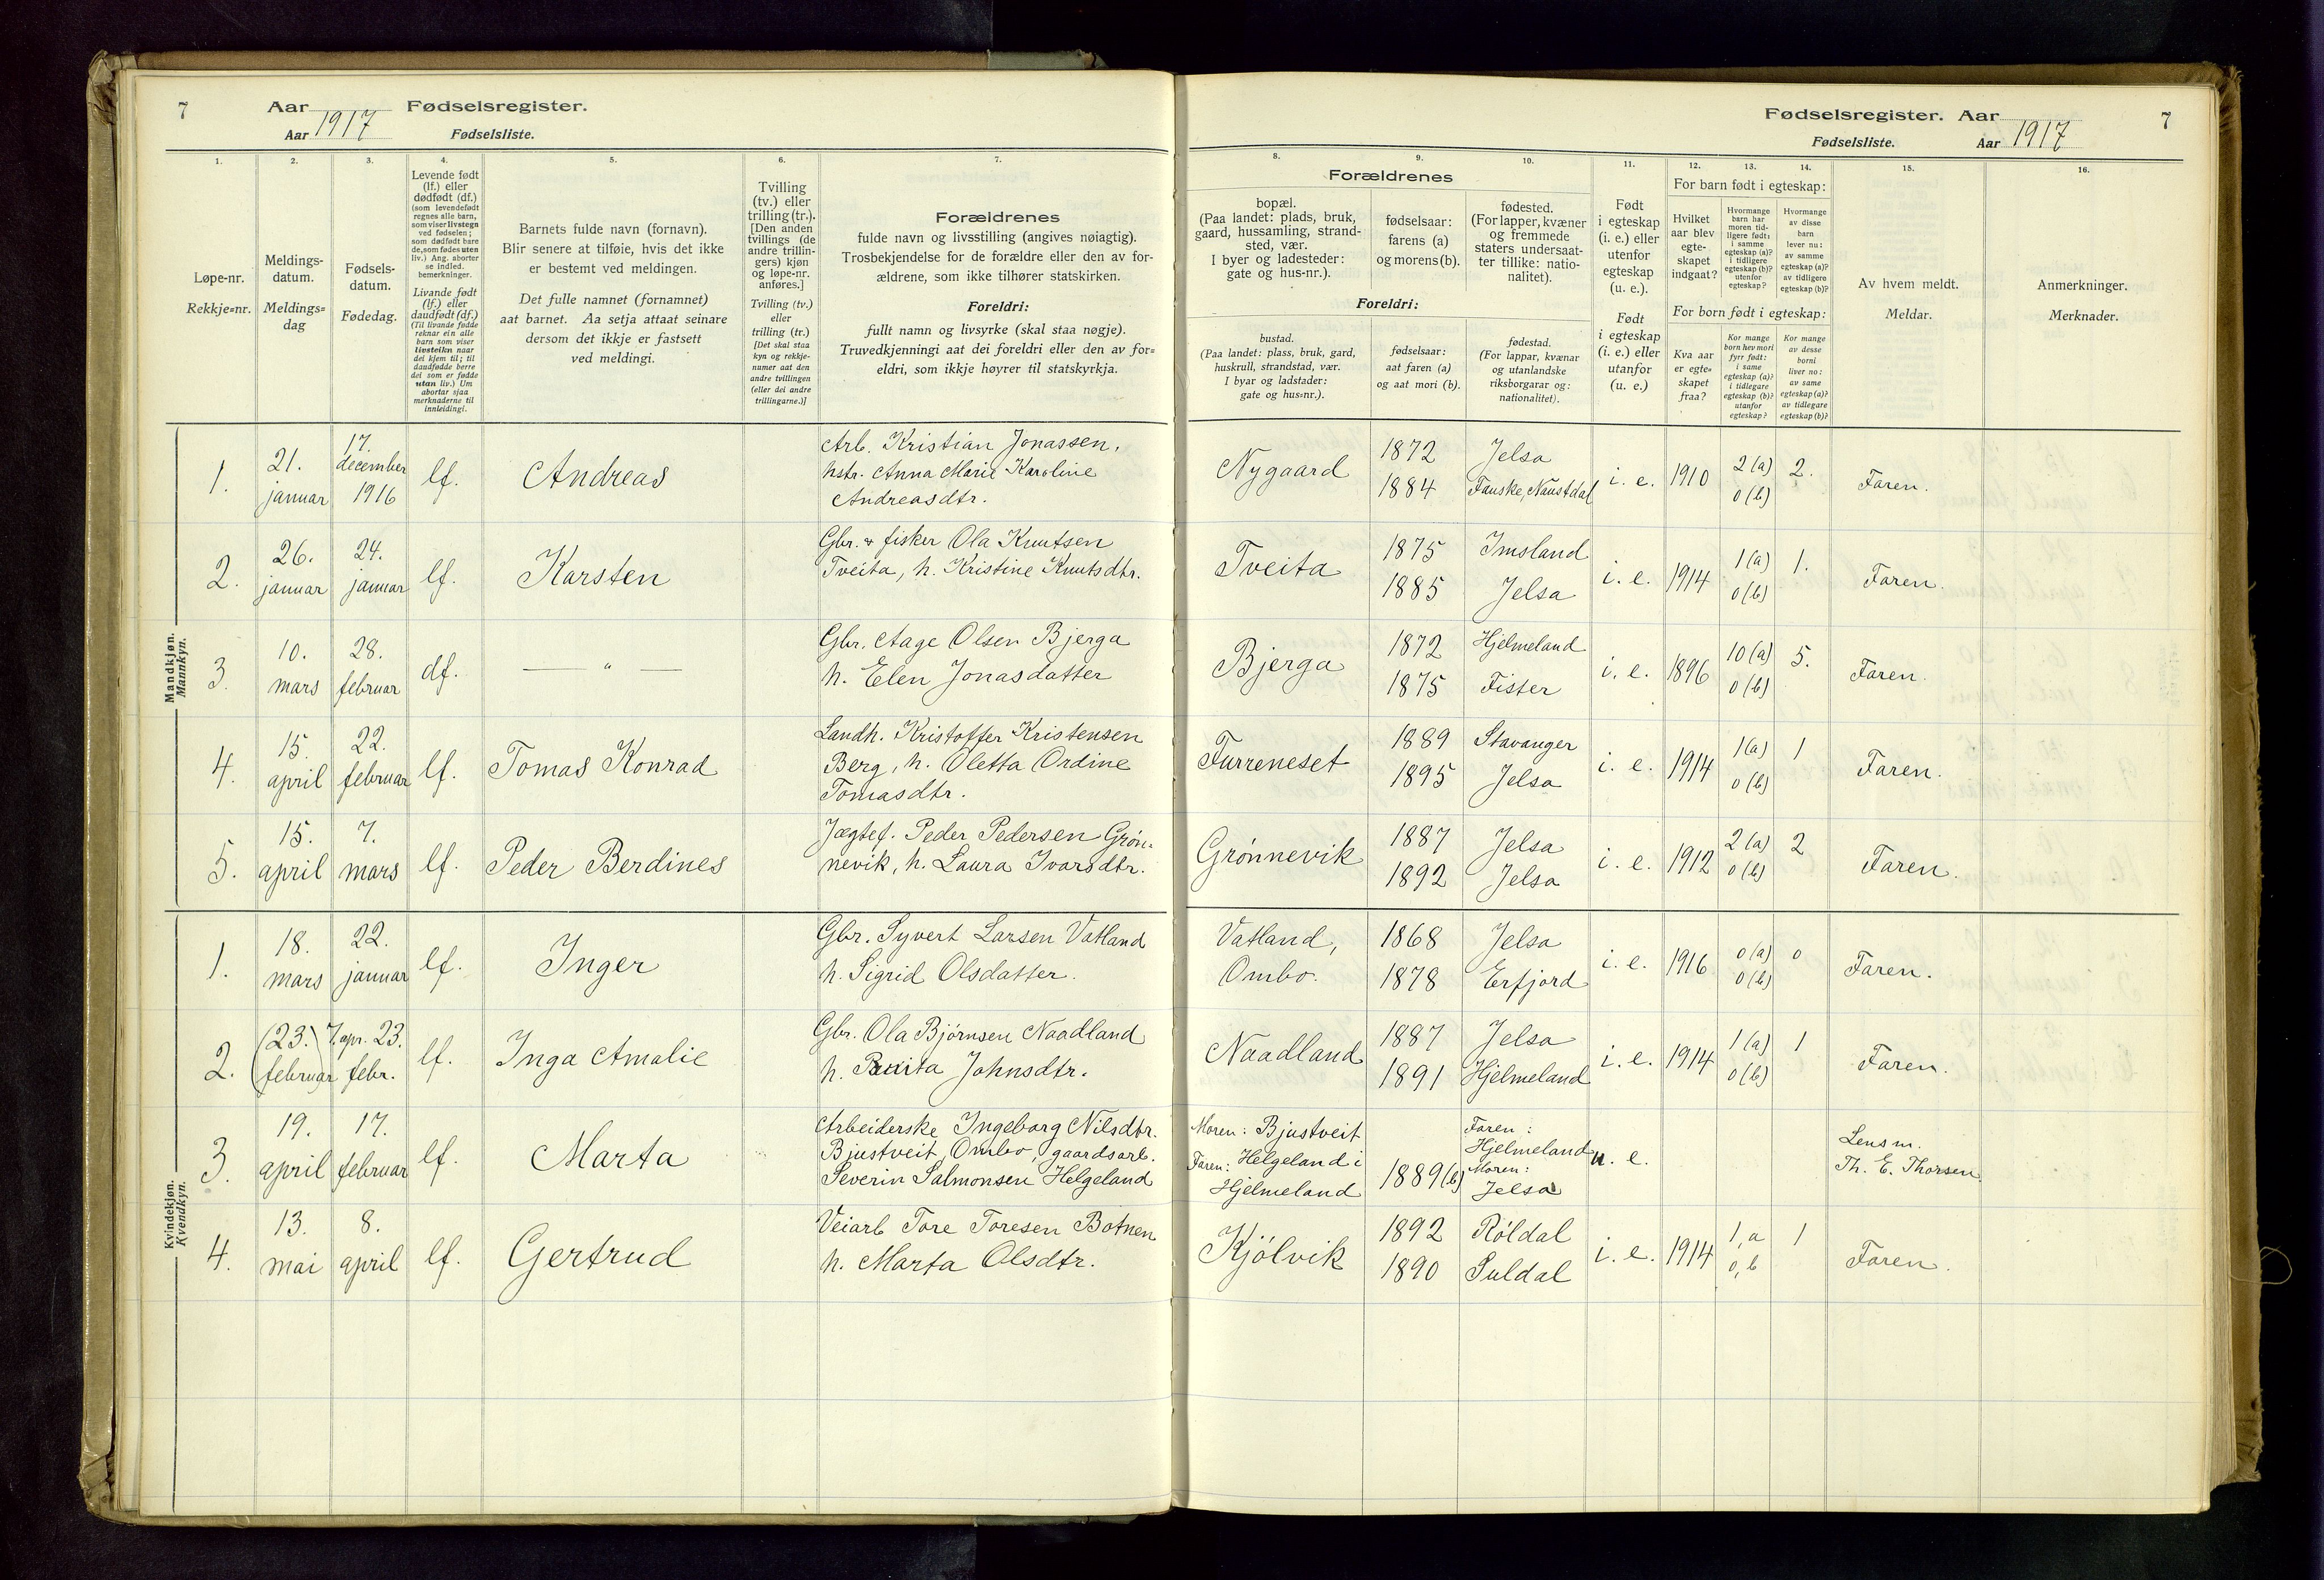 7
Aar
Fødselsregister.
Aar 1917
Fødselsliste.
1.
2.
3.
4.
5.
6.
7.
Løpe-nr.
Rekkje=nr.
Meldings-
datum.
Meldings=
dag
Fødsels-
datum.
Fødedag.
Levende født
(lf.) eller
dødfødt (df.)
(som levendefødt
regnes alle barn,
som viser livstegn
ved fødselen;
som dødfødt bare
de, som fødes uten
liv.) Ang. aborter
se indled.
bemerkninger.
Livande født
(lf.) eller
daudfødt (df.)
(Til livande fødde
reknar ein alle
barn som viser
livsteikn naar
dei kjem til; til
daudfødde berre
dei som er fødde
utan liv.) Um
abortar sjaa
merknaderne til
innleidingi.
Barnets fulde navn (fornavn).
Blir senere at tilføie, hvis det ikke
er bestemt ved meldingen.
Det fulle namnet (fornamnet)
aat barnet. Aa setja attaat seinare
dersom det ikkje er fastsett
ved meldingi.
Tvilling
(tv.) eller
trilling (tr.).
[Den anden
tvillings (de
andre trillin-
gers) kjøn
og løpe-nr.
anføres.]
Tvilling (tv.)
eller
trilling (tr.)
[Det skal staa
kyn og rekkje-
numer aat den
andre tvillingen
(eller dei andre
trillingarne.)]
Forældrenes
fulde navn og livsstilling (angives nøiagtig).
Trosbekjendelse for de forældre eller den av for-
ældrene, som ikke tilhører statskirken.
Foreldri:
fullt namn og livsyrke (skal staa nøgje).
Truvedkjenningi aat dei foreldri eller den av for=
eldri, som ikkje høyrer til statskyrkja.
Mandkjøn.
Mannkyn.
1.
21.
januar
17.
december
1916
lf.
Andreas
Arb. Kristian Jonassen,
hstr. Anna Marie Karoline
Andreasdtr.
2.
26.
januar
24.
januar
lf.
Karsten
Gbr. & fisker Ola Knutsen
Tveita, h. Kristine Knutsdtr.
3.
10.
mars
28.
februar
df.
— " —
Gbr. Aage Olsen Bjerga
h. Elen Jonasdatter
4.
15.
april
22.
februar
lf.
Tomas Konrad
Landh. Kristoffer Kristensen
Berg, h. Oletta Ordine
Tomasdtr.
5.
15.
april
7.
mars
lf.
Peder Berdines
Jægtef. Peder Pedersen Grøn-
nevik, h. Laura Ivarsdtr.
Kvindekjøn.
Kvendkyn.
1.
18.
mars
22.
januar
lf.
Inger
Gbr. Syvert Larsen Vatland
h. Sigrid Olsdatter.
2.
(23.)
(februar
7. apr. 23.
febr.
lf.
Inga Amalie
Gbr. Ola Bjørnsen Naadland
h. Johnsdtr.
3.
19.
april
17.
februar
lf.
Marta
Arbeiderske Ingeborg Nilsdtr.
Bjustveit, Ombo, gaardsarb.
Severin Salmonsen Helgeland
4.
13.
mai
8.
april
lf.
Gertrud
Veiarb Tore Toresen Botnen
h. Marta Olsdtr.
Fødselsregister. Aar
7
Fødselsliste.
Aar 1917
8.
9.
10.
11.
12.
13.
14.
15.
16.
Forældrenes
bopæl.
(Paa landet: plads, bruk,
gaard, hussamling, strand-
sted, vær.
I byer og ladesteder:
gate og hus-nr.).
fødselsaar:
farens (a)
og morens (b).
fødested.
(For lapper, kvæner
og fremmede
staters undersaat-
ter tillike: natio-
nalitet).
Foreldri:
bustad.
(Paa landet: plass, bruk, gard,
huskrull, strandstad, vær.
I byar og ladstader:
gate og hus=nr.).
fødselsaar:
aat faren (a)
og aat mori (b).
fødestad.
(For lappar, kvænar
og utanlandske
riksborgarar og:
nationalitet).
Født
i egteskap
(i. e.) eller
utenfor
egteskap
(u. e.).
Født
i egteskap
(i. e.) eller
utanfor
egteskap
(u. e.)
For barn født i egteskap:
Hvilket
aar blev
egte-
skapet
indgaat?
Hvormange
barn har
moren tid-
ligere født:
i samme
egteskap (a)?
i tidligere
egteskap (b)?
utenfor
egteskap?
Hvormange
av disse
barn
lever nu:
av samme
egteskap (a)?
av tidligere
egteskap (b)?
For born født i egteskap:
Kva aar
er egte=
skapet
fraa?
Kor mange
born hev mori
fyrr født:
i same
egteskap (a)?
i tidlegare
egteskap (b)?
utanfor
egteskap?
Kor mange
av desse
borni
liver no:
av same
egteskap (a)?
av tidlegare
egteskap (b)?
Av hvem meldt.
Meldar.
Anmerkninger.
Merknader.
Nygaard
1872
1884
Jelsa
Fauske, Naustdal
i. e.
1910
2 (a)
0 (b)
2.
Faren.
Tveita
1875
1885
Imsland
Jelsa
i. e.
1914
1 (a)
0 (b)
1.
Faren.
Bjerga
1872
1875
Hjelmeland
Fister
i. e.
1896
10 (a)
0 (b)
5.
Faren.
Furreneset
1889
1895
Stavanger
Jelsa
i. e.
1914
1 (a)
0 (b)
1
Faren.
Grønnevik
1887
1892
Jelsa
Jelsa
i. e.
1912
2 (a)
0 (b)
2
Faren.
Vatland,
Ombo.
1868
1878
Jelsa
Erfjord
i. e.
1916
0 (a)
0 (b)
0
Faren.
Naadland
1887
1891
Jelsa
Hjelmeland
i. e.
1914
1 (a)
0 (b)
1
Faren.
Moren: Bjustveit
Faren: Helgeland i
Hjelmeland
1889 (b)
Faren:
Hjelmeland
Moren:
Jelsa
u. e.
Lensm.
Th. E. Thorsen.
Kjølvik
1892
1890
Røldal
Suldal
i. e.
1914
1, a
0, b
1
Faren.